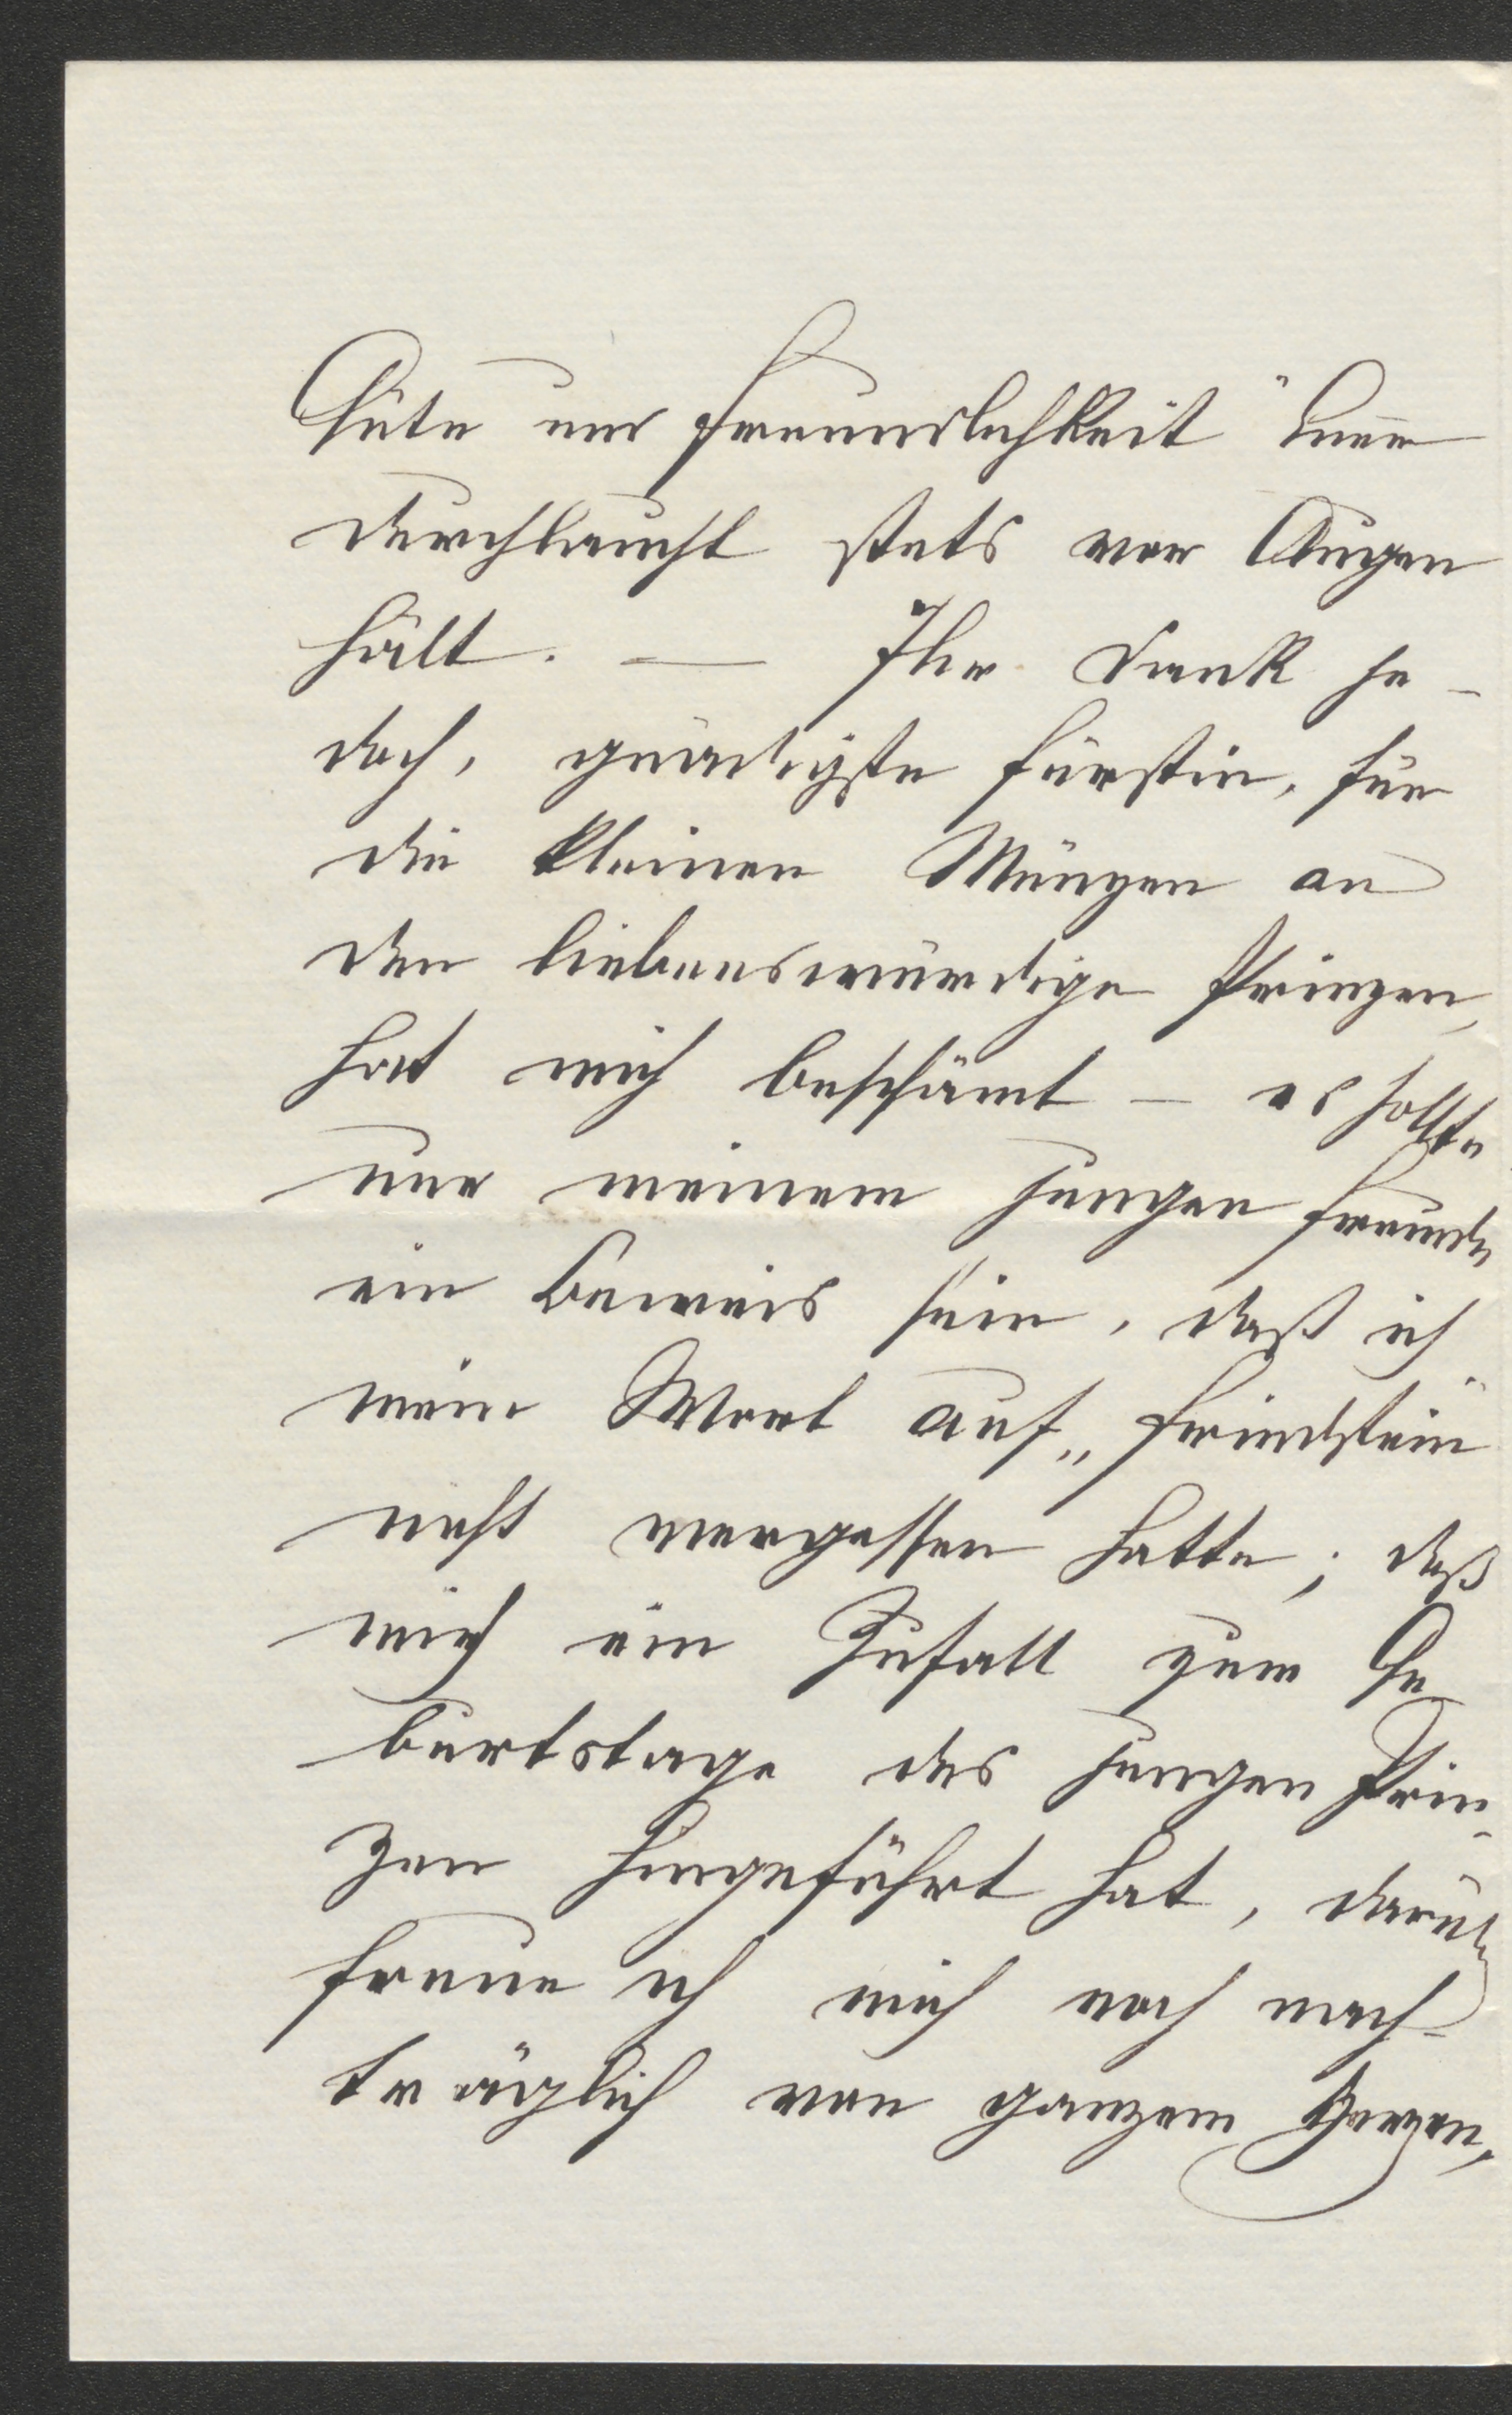 Güte und Freundlichkeit Euer
Durchlaucht stets vor Augen
hält. — Ihr Dank je-
doch, gnädigste Fürstin, für
die kleinen Münzen an
den liebenswürdigen Prinzen,
hat mich beschämt – es sollte
nur meinem jungen Freunde
ein Beweis sein, daß ich
mein Wort auf „Friedstein"
nicht vergessen hatte; daß
mich ein Zufall zum Ge-
burtstage des jungen Prin-
zen hingeführt hat, darüber
freue ich mich noch nach-
träglich von ganzem Herzen,